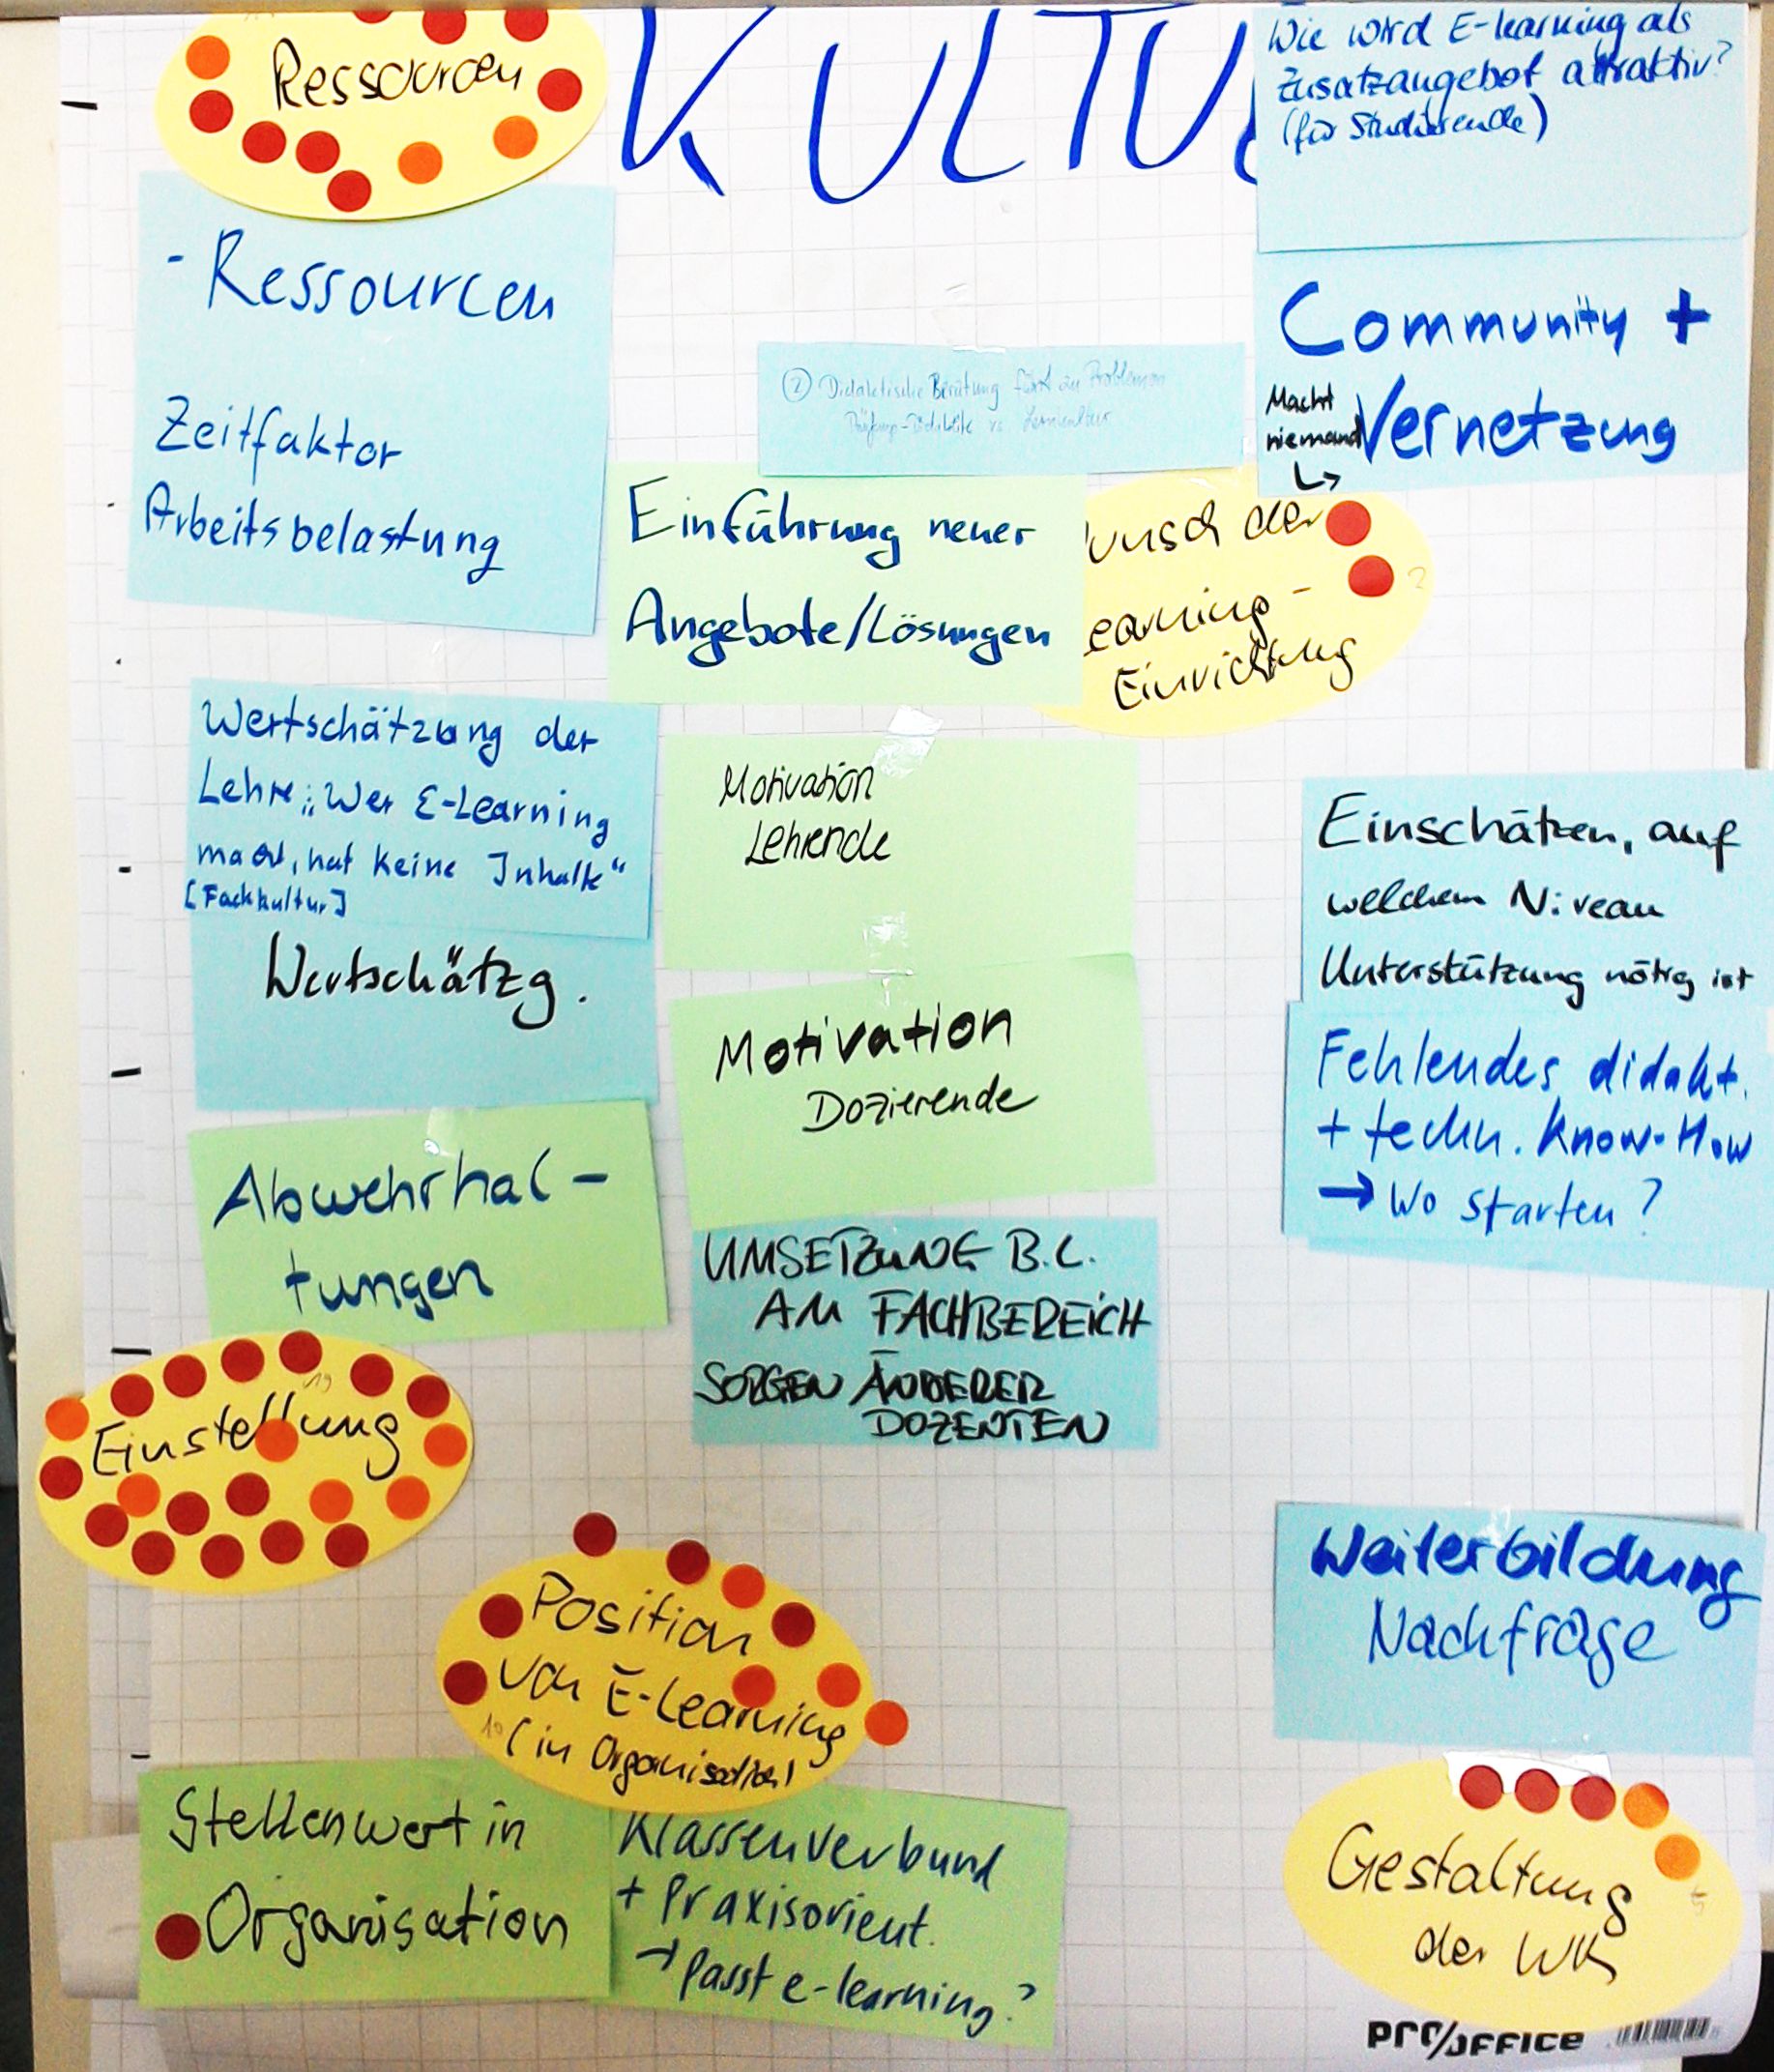 Ressourcen
KULTU
Wie wird E-learning als
Zusatzangebot attraktiv?
(für Studierende)
- Ressourcen
Zeitfaktor
Arbeitsbelastung
Community +
Macht
niemand
Vernetzung
② Didaktische Beratung führt zu Problemen
Prüfungs-Didaktik vs. Lernkultur
Einführung neuer
Angebote/Lösungen
unsch der
earning-
Einrichtung
2
Wertschätzung der
Lehre: "Wer E-Learning
macht, hat keine Inhalte"
[Fachkultur]
Wertschätzg.
Motivation
Lehrende
Motivation
Dozierende
Einschätzen, auf
welchem Niveau
Unterstützung nötig ist
Fehlendes didakt.
+ techn. Know-How
→ Wo starten?
Abwehrhal-
tungen
UMSETZUNG B.L.
AM FACHBEREICH
SORGEN ANDERER
DOZENTEN
19
Einstellung
Position
von E-Learning
10 (in Organisation)
Weiterbildung
Nachfrage
Stellenwert in
Organisation
Klassenverbund
+ Praxisorient.
→ passt e-learning?
Gestaltung
5
der WK
PRO/OFFICE